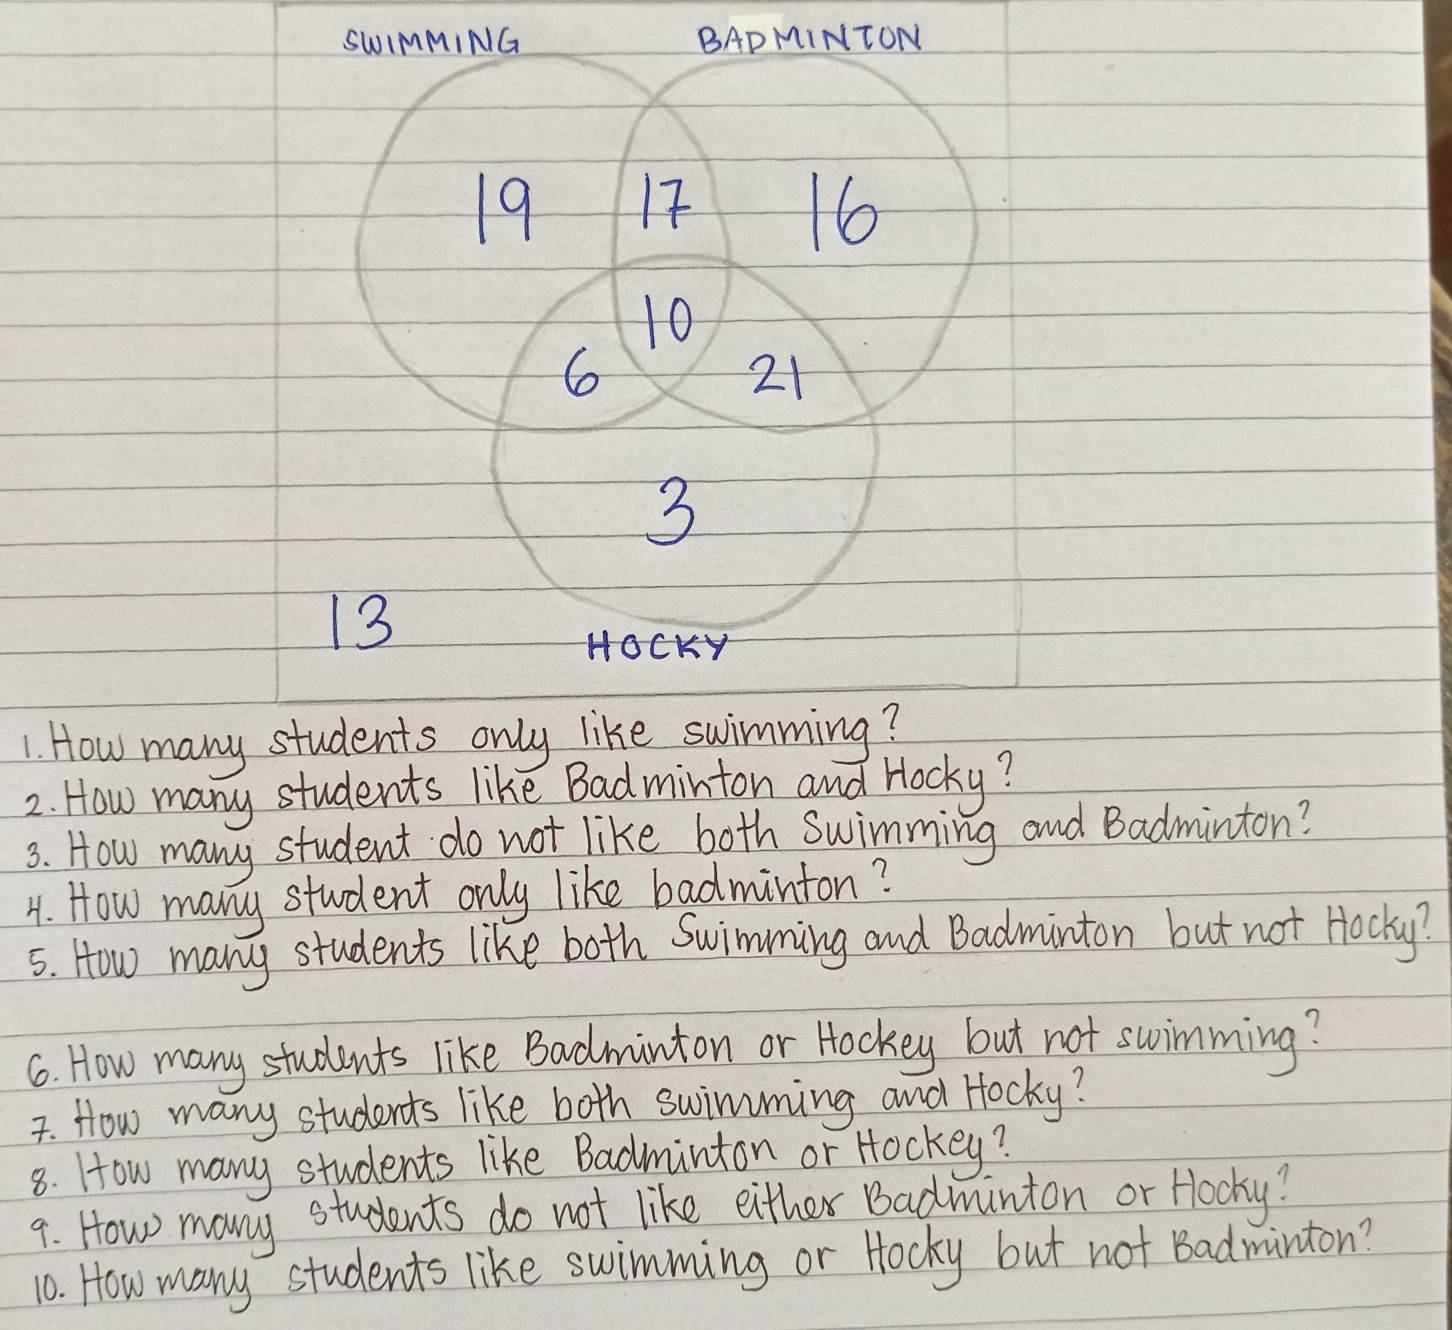 SWIMMING BADMINTON
19 17 16
10
6 21
3
13
HOCKY
1. How many students only like swimming?
2. How many students like Badminton and Hocky?
3. How many student do not like both Swimming and Badminton?
4. How many student only like badminton?
5. How many students like both Swimming and Badminton but not Hocky?
6. How many students like Badminton or Hockey but not swimming?
7. How many students like both swimming and Hocky?
8. How many students like Badminton or Hockey?
9. How many students do not like either Badminton or Hocky?
10. How many students like swimming or Hocky but not Badminton?